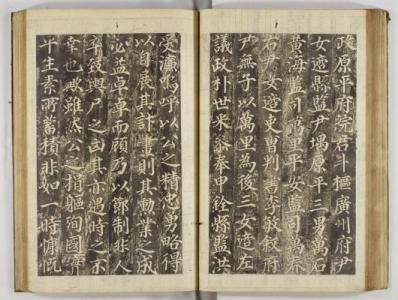 政原平府院君斗樞廣州府尹
女適縣監尹堣原平三男萬石
黃海監司萬里平女監司萬春
右尹女適吏曹判書李敘府
尹無子以萬里爲後三女適左
議政朴世采參奉申銓縣監洪
嗚呼以公之精忠勇略得
以自展其計畫則其勳業之成
必益卓卓而顧乃以節制非人
卒致輿尸之凶其亦遇時之不
幸也歟雖然公之捐軀殉國實
平生素所蓄積非如一時慷慨